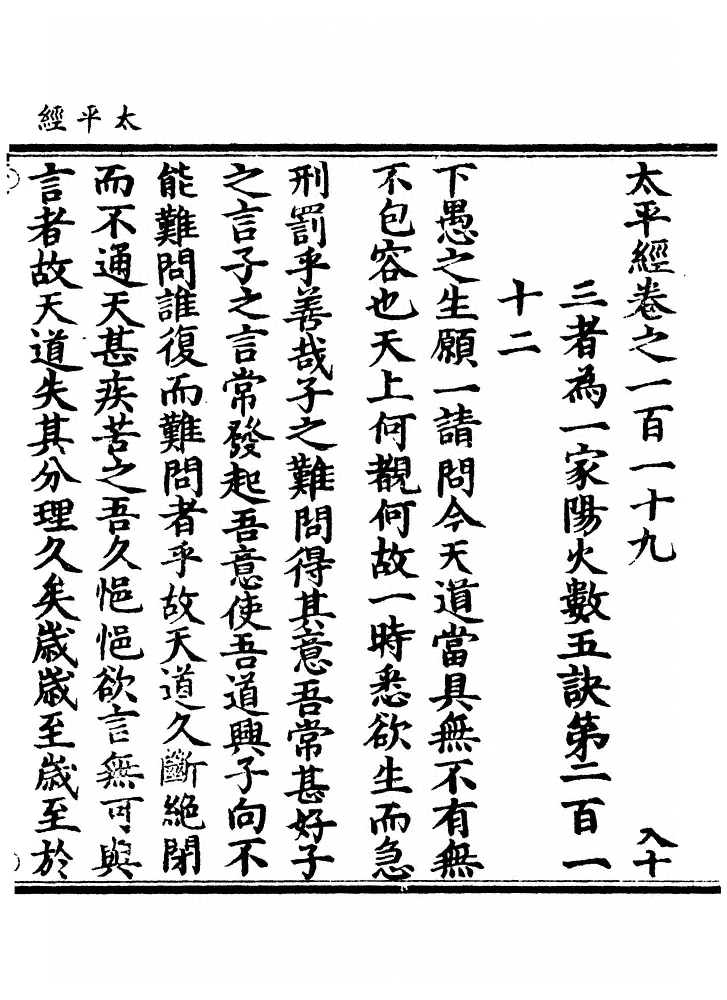 太平經
太平經卷之一百一十九　入十
三者為一家陽火數五訣第二百一
十二
下愚之生願一請問今天道當具無不有無
不包容也天上何覩何故一時悉欲生而急
刑罰乎善哉子之難問得其意吾常甚好子
之言子之言常發起吾意使吾道興子向不
能難問誰復而難問者乎故天道久斷絕閉
而不通天甚疾苦之吾久悒悒欲言無可與
言者故天道失其分理久矣歲歲至歲至於